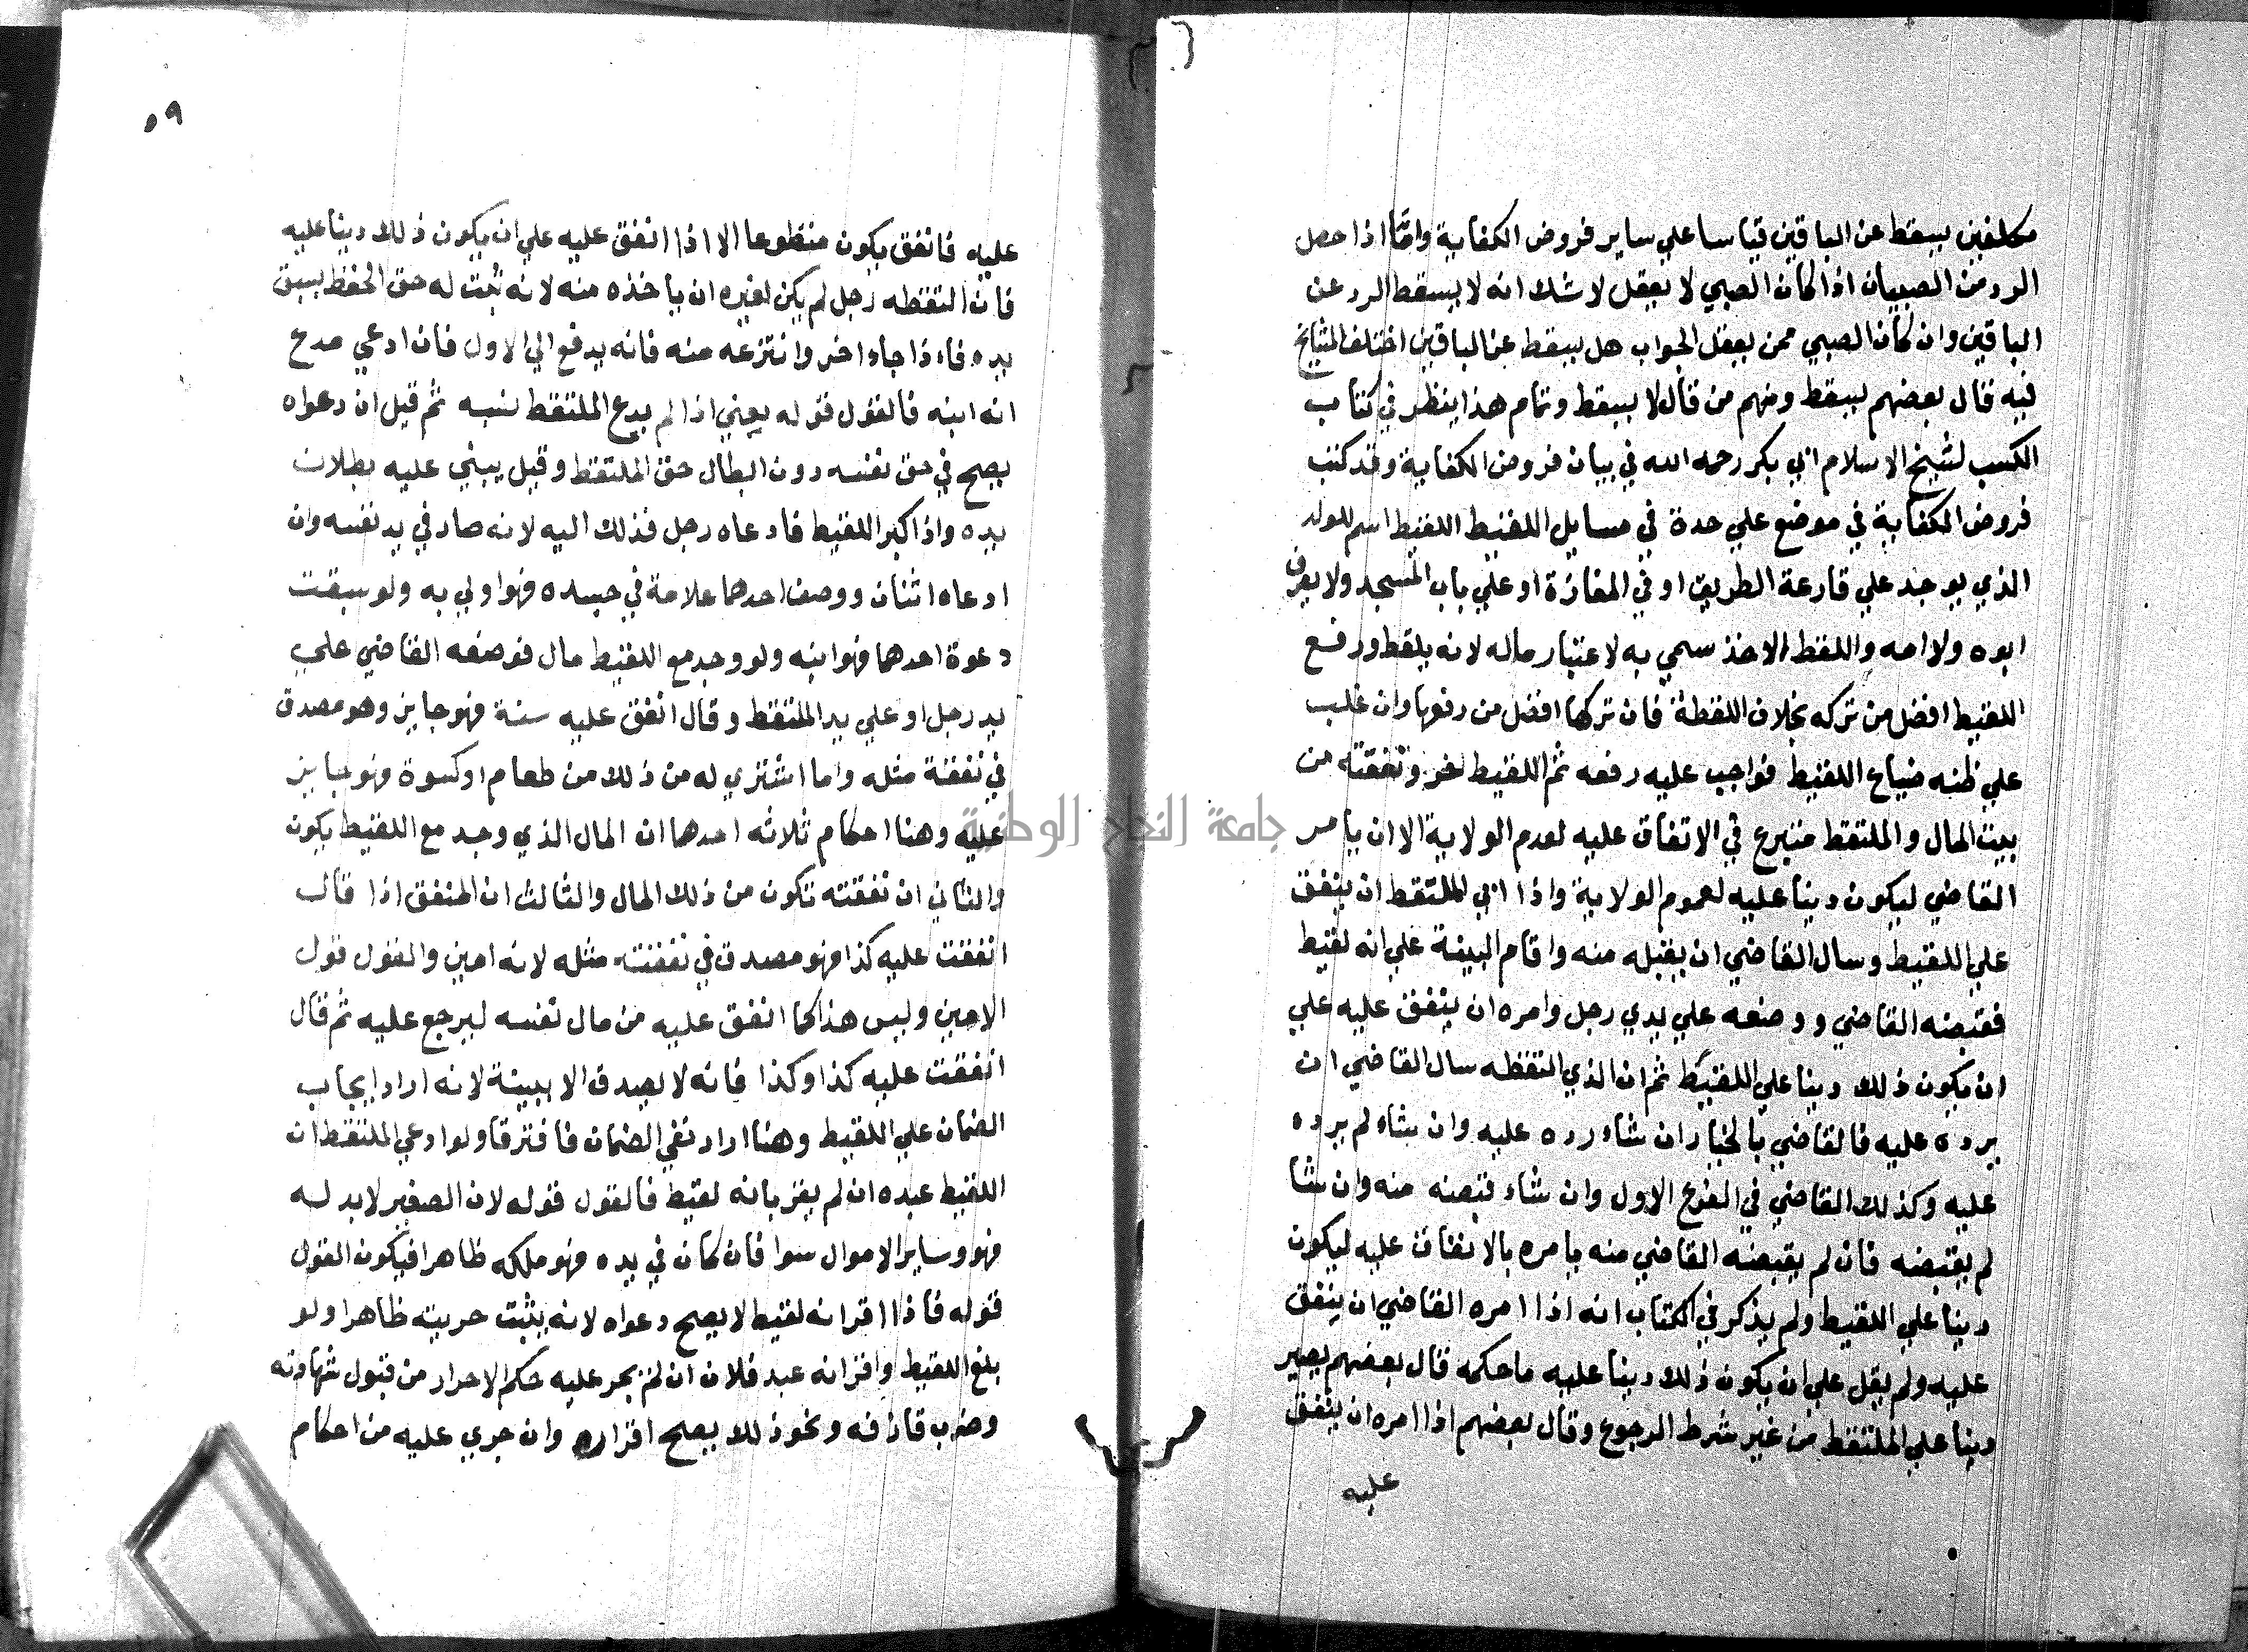 مكلفين يسقط عن الباقين قياسا علي ساير فروض الكفاية واما اذا حصل
الرد من الصبيان اذا كان الصبي لا يعقل لا شك انه لا يسقط الرد عن
الباقين وان كان الصبي ممن يعقل الجواب هل يسقط عن الباقين اختلف المشايخ
فيه قال بعضهم يسقط ومنهم من قال لا يسقط وتمام هذا ينظر في كتاب
الكسب لشيخ الاسلام ابي بكر رحمه الله في بيان فروض الكفاية وقد كتب
فروض الكفاية في موضع علي حدة في مسايل اللقيط اللقيط اسم للولد
الذي يوجد علي قارعة الطريق او في المفازة او علي باب المسجد ولا يعرف
ابوه ولا امه واللقط الاخذ سمي به لاعتبار ماله لانه يلقط ورفع
اللقيط افضل من تركه بخلاف اللقطة فان تركها افضل من رفعها وان غلب
علي ظنه ضياع اللقيط فواجب عليه رفعه ثم اللقيط حر ونفقته من
بيت المال والملتقط متبرع في الانفاق عليه لعدم الولاية الا ان يامر
القاضي ليكون دينا عليه لعموم الولاية واذا ابي الملتقط ان ينفق
علي اللقيط وسال القاضي ان يقبله منه واقام البينة علي انه لقيط
فقبضه القاضي ووضعه علي يدي رجل وامره ان ينفق عليه علي
ان يكون ذلك دينا علي اللقيط ثم ان الذي التقطه سال القاضي ان
يرده عليه فالقاضي بالخيار ان شاء رده عليه وان شاء لم يرده
عليه وكذلك القاضي في الفرع الاول وان شاء قبضه منه وان شا
لم يقبضه فان لم يقبضه القاضي منه يامره بالانفاق عليه ليكون
دينا علي اللقيط ولم يذكر في الكتاب انه اذا امره القاضي ان ينفق
عليه ولم يقل علي ان يكون ذلك دينا عليه ما حكمه قال بعضهم يصير
دينا علي الملتقط من غير شرط الرجوع وقال بعضهم اذا امره ان ينفق
عليه
٥٩
عليه فانفق يكون متطوعا الا اذا انفق عليه علي ان يكون ذلك دينا عليه
فان التقطه رجل لم يكن لغيره ان ياخذه منه لانه ثبت له حق الحفظ بسبق
يده فاذا جاء اخر وانتزعه منه فانه يدفع الي الاول فان ادعي مدع
انه ابنه فالقول قوله يعني اذا لم يدع الملتقط نسبه ثم قيل ان دعواه
يصح في حق نفسه دون ابطال حق الملتقط وقيل يبني عليه بطلان
يده واذا كبر اللقيط فادعاه رجل فذلك اليه لانه صار في يد نفسه وان
ادعاه اثنان ووصف احدهما علامة في جسده فهو اولي به ولو سبقت
دعوة احدهما فهو ابنه ولو وجد مع اللقيط مال فوضعه القاضي علي
يد رجل او علي يد الملتقط وقال انفق عليه سنة فهو جايز وهو مصدق
في نفقة مثله واما اشتري له من ذلك من طعام او كسوة فهو جايز
عليه وهنا احكام ثلاثه احدها ان المال الذي وجد مع اللقيط يكون
والثاني ان نفقته تكون من ذلك المال والثالث ان المنفق اذا قال
انفقت عليه كذا فهو مصدق في نفقته مثله لانه امين والقول قول
الامين وليس هذا كما انفق عليه من مال نفسه ليرجع عليه ثم قال
انفقت عليه كذا وكذا فانه لا يصدق الا ببينة لانه اراد ايجاب
الضمان علي اللقيط وهنا اراد نفي الضمان فافترقا ولو ادعي الملتقط ان
اللقيط عبده ان لم يقر بانه لقيط فالقول قوله لان الصغير لا يد له
فهو وساير الاموال سوا فان كان في يده فهو ملكه ظاهرا فيكون القول
قوله فاذا اقر انه لقيط لا يصح دعواه لانه يثبت حريته ظاهرا ولو
بلغ اللقيط واقر انه عبد فلان ان لم يجر عليه حكم الاحرار من قبول شهادته
وضرب قاذفه ونحو ذلك يصح اقراره وان جري عليه من احكام
جامعة النجاح الوطنية